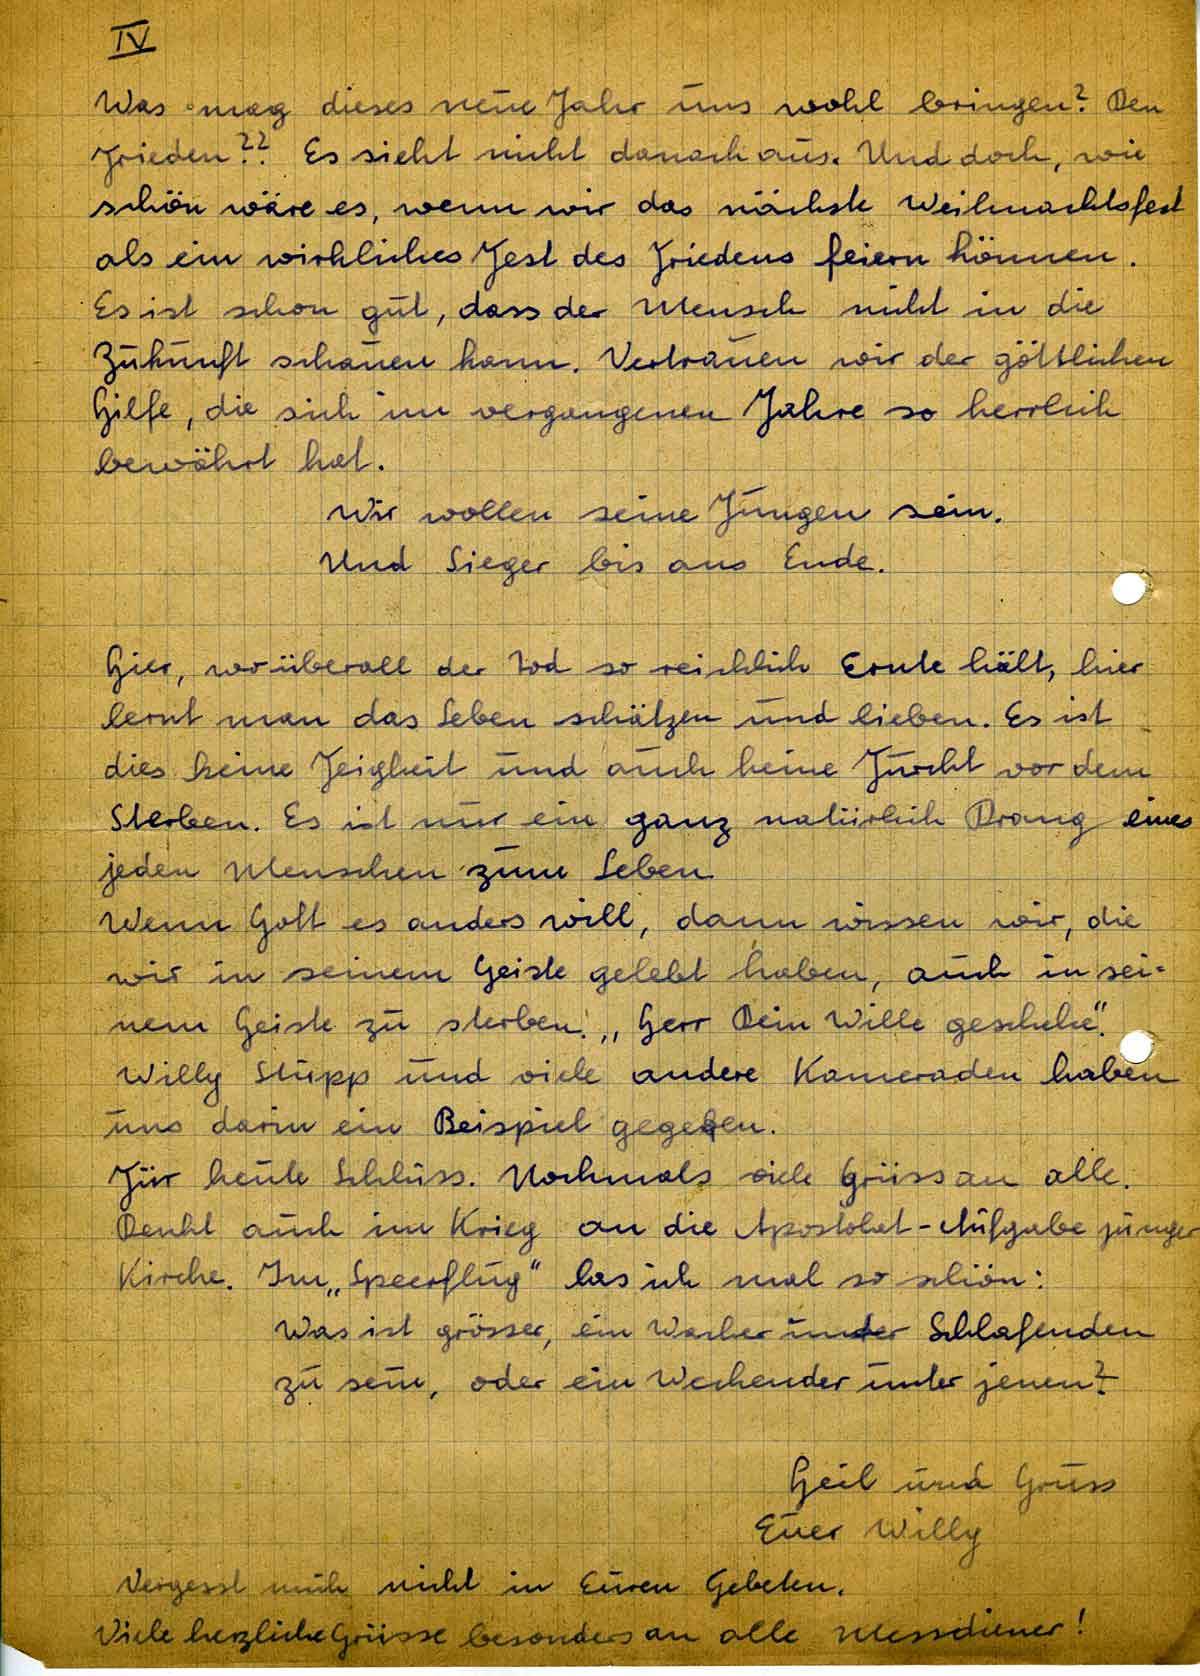 IV
Was mag dieses neue Jahr uns wohl bringen? Den
Frieden??? Es sieht nicht danach aus. Und doch, wie
schön wäre es, wenn wir das nächste Weihnachtsfest
als ein wirkliches Fest des Friedens feiern können.
Es ist schon gut, dass der Mensch nicht in die
Zukunft schauen kann. Vertrauen wir der göttlichen
Hilfe, die sich im vergangenen Jahre so herrlich
bewährt hat.
Wir wollen seine Jungen sein.
Und Sieger bis ans Ende.
Hier, wo überall der Tod so reichlich Ernte hält, hier
lernt man das Leben schätzen und lieben. Es ist
dies keine Feigheit und auch keine Furcht vor dem
Sterben. Es ist nur ein ganz natürlich Drang eines
jeden Menschen zum Leben.
Wenn Gott es anders will, dann wissen wir, die
wir in seinem Geiste gelebt haben, auch in sei-
nem Geiste zu sterben. „Herr Dein Wille geschehe".
Willy Stupp und viele andere Kameraden haben
uns darin ein Beispiel gegeben.
Für heute Schluss. Nochmals viele Grüss an alle.
Denkt auch im Krieg an die Apostolat-Aufgabe junger
Kirche. Im „Speerflug" las ich mal so schön:
Was ist grösser, ein Wacher unter Schlafenden
zu sein, oder ein Weckender unter jenen?
Heil und Gruss
Euer Willy
Vergesst mich nicht in Euren Gebeten.
Viele herzliche Grüsse besonders an alle Messdiener!